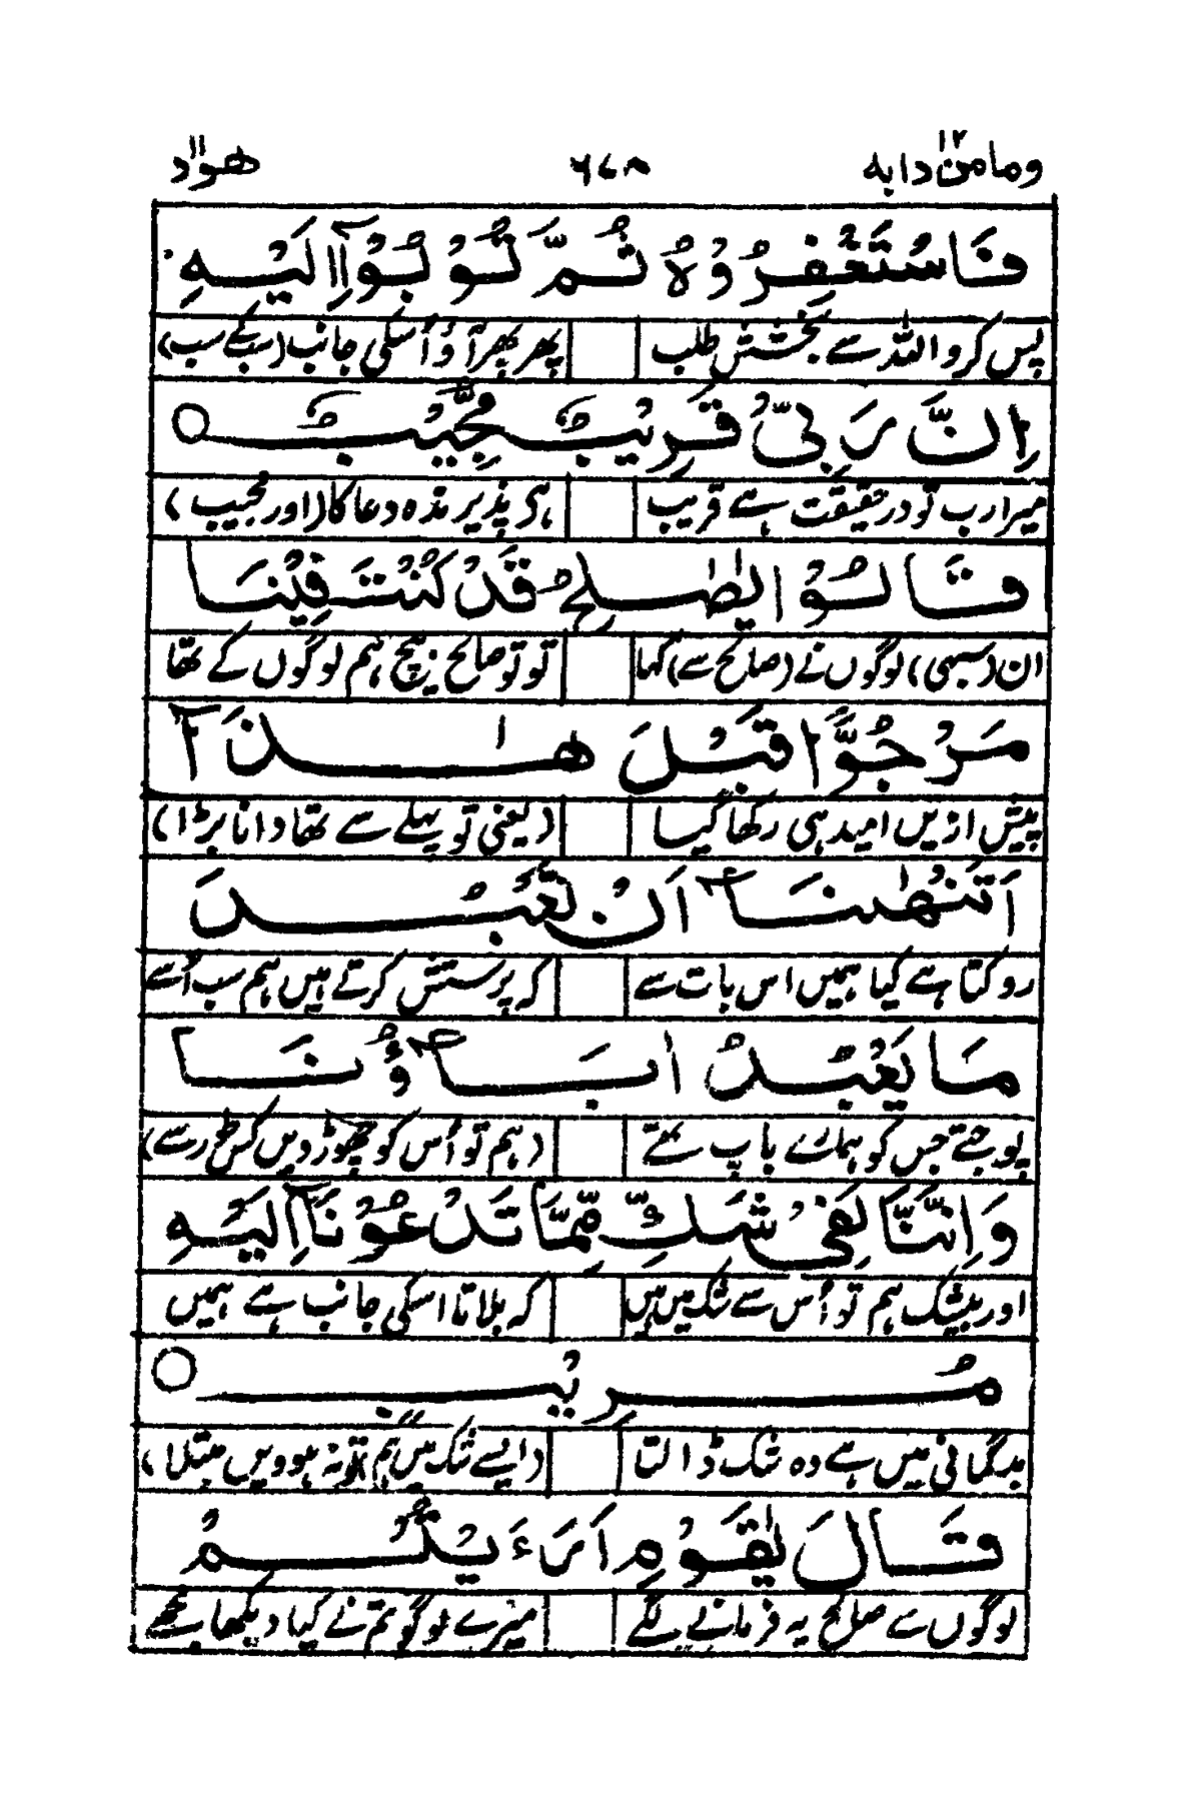 ومامن دابہ ۱۲ ۶۷۸ ھود ۱۱
فَاسْتَغْفِرُوْهُ ثُمَّ تُوْبُوْٓا اِلَيْهِ ؕ
پس کرو اللہ سے بخشش طلب پھر پھر آؤ اُسکی جانب (سب کے سب)
اِنَّ رَبِّيْ قَرِيْبٌ مُّجِيْبٌ ○
میرا رب تو درحقیقت ہے قریب ہی پذیرندہ دعا کا (اور مجیب)
قَالُوْا يٰصٰلِحُ قَدْ كُنْتَ فِيْنَا
ان (سبھی) لوگوں نے (صالح سے) کہا تو تو صالح بیچ ہم لوگوں کے تھا
مَرْجُوًّا قَبْلَ هٰذَآ
پیش ازیں امید ہی رکھا گیا (یعنی تو پہلے سے تھا دانا بڑا)
اَتَنْهٰىنَآ اَنْ نَّعْبُدَ
روکتا ہے کیا ہمیں اس بات سے کہ پرستش کرتے ہیں ہم سب اُسے
مَا يَعْبُدُ اٰبَآؤُنَا
پوجتے جس کو ہمارے باپ تھے (ہم تو اُس کو چھوڑ دیں کس طور سے)
وَاِنَّنَا لَفِيْ شَكٍّ مِّمَّا تَدْعُوْنَآ اِلَيْهِ
اور بیشک ہم تو اُس سے شک میں ہیں کہ بلاتا اسکی جانب ہے ہمیں
مُرِيْبٍ ○
بدگمانی میں ہے وہ شک ڈالتا (ایسے شک میں ہم نہ ہوویں مبتلا)
قَالَ يٰقَوْمِ اَرَءَيْتُمْ
لوگوں سے صالح یہ فرمانے لگے میرے لوگو تم نے کیا دیکھا مجھے